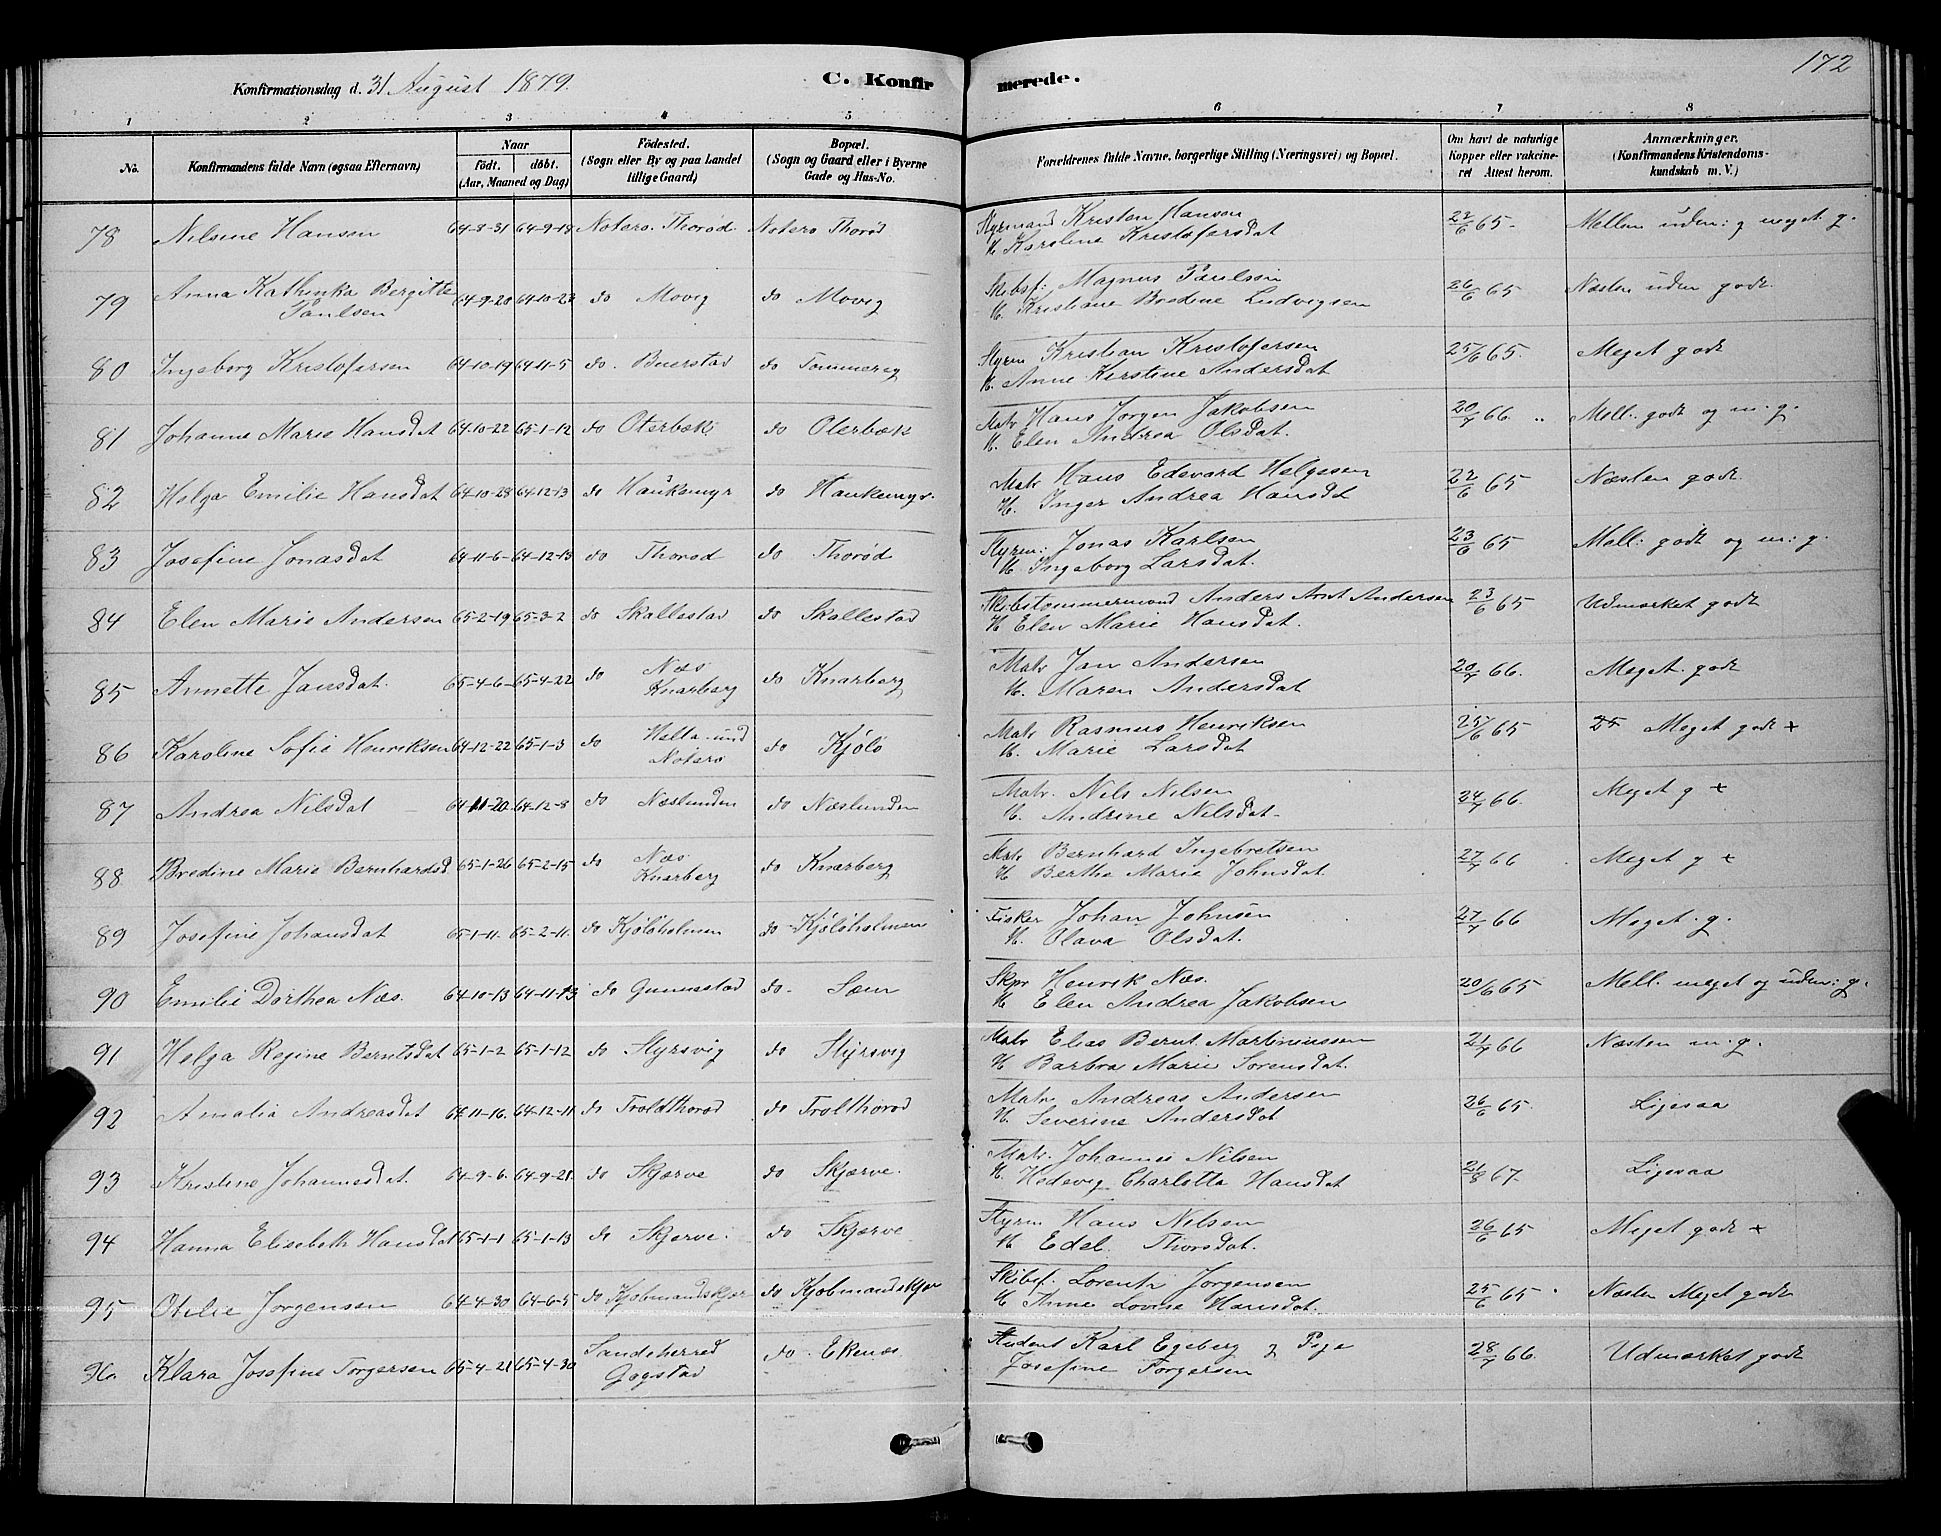 172
Konfirmationsdag d. 31 August 1879.
C. Konfirmerede.
1 2 3 4 5 6 7 8
No. | Konfirmandens fulde Navn (ogsaa Efternavn) | Naar født. døbt. (Aar, Maaned og Dag) | Fødested. (Sogn eller By og paa Landet tillige Gaard.) | Bopæl. (Sogn og Gaard eller i Byerne Gade og Hus-No. | Forældrenes fulde Navne, borgerlige Stilling (Næringsvei) og Bopæl. | Om havt de naturlige Kopper eller vakcineret Attest herom. | Anmærkninger. (Konfirmandens Kristendomskundskab m. V.)
78 Nilsine Hansen 64-8-31 64-9-18 Noterø. Thorød. Noterø Thorød Styrmand Kristen Hansen 22/6 65. Mellem uden: g meget g.
H. Karoline Kristofersdat
79 Anna Kathinka Bergitte Paulsen 64-9-20 64-10-23 do Movig do Movig Skibsf: Magnus Paulsen 26/6 65 Næsten uden godt.
H. Kristiane Bredine Ludvigsen
80 Ingeborg Kristofersen 64-10-19 64-11-5 do. Buerstad do Tommerey Styrm Kristian Kristofersen 25/6 65. Meget godt
H. Anne Kirstine Andersdat
81 Johanne Marie Hansdat 64-10-22 65-1-12 do Oterbæk do Oterbæk Matr Hans Jørgen Jakobsen 20/7 66 „ Mell. godt og m. g.
H. Elen Andrea Olsdat.
82 Helga Emilie Hansdat 64-10-28 64-12-13 do Haukemyr do Haukemyr. Matr Hans Edevard Helgesen 22/6 65 Næsten godt.
H. Inger Andrea Hansdt
83 Josefine Jonasdat 64-11-6- 64-12-13 do Thorød do Thorød Styrm: Jonas Karlsen 23/6 65 Mell: godt og m: g.
H. Ingeborg Larsdat.
84 Elen Marie Andersen 65-2-19 65-3-2 do Skallestad do Skallestad Skibstømmermand Anders Arnt Andersen 23/6 65 Udmærket godt
H Elen Marie Hansdat.
85 Annette Jansdat. 65-4-6- 65-4-22 do Næs Knarberg do Knarberg Matr Jan Andersen 20/7 66. Meget. godt
H. Maren Andersdat
86 Karoline Sofie Henriksen 64-12-22 65-1-3 do Helta-und Noterø do Kjøle Matr Rasmus Henriksen 25/6 65 Meget godt +
H. Marie Larsdat
87 Andrea Nilsdat - 64-11-20 64-12-8 do Næslunden do Næslunden Matr. Nils Nilsen 24/7 66. Meget g +
H. Andrine Nilsdat-
88 Bredine Marie Bernhardsd 65-1-26 65-2-15 do Næs Knarberg do Knarberg Matr Bernhard Ingebretsen 27/7 66 Meget g +
H Berthe Marie Johnsdat
89 Josefine Johansdat 65-1-11. 65-2-11. do Kjøløholmen do Kjøløholmen Fisker Johan Johnsen 27/7 66 Meget. g.
H. Olava Olsdat.
90 Emilie Dorthea Næs. 64-10-13 64-11-13 do Gunnestad do- Sæm Skpr Henrik Næs. 20/6 65 Mell. meget og uden: g.
H Elen Andrea Jakobsen
91 Helga Regine Berntsdat 65-1-2 65-1-12 do Styrsvig do Styrsvig Matr Elias Bernt Martiniussen 21/7 66 Næsten m. g.
H Barbra Marie Sorensdat.
92 Amalia Andreasdat 64-11-16. 64-12-11 do Troldthorød do Trolthorød Matr Andreas Andersen 26/6 65. Ligesaa
H. Severine Andersdat
93 Kristine Johannesdat. 64-9-6. 64-9-21 do Skjærve do Skjærve. Matr. Johannes Nilsen 21/8 67- Ligesaa
H. Hedevig Charlotta Hansdat
94 Hanna Elisebeth Hansdat 65-1-1 65-1-13 do Skjærve. do Skjærve Styrm Hans Nilsen 26/6 65 Meget godt +
H Edel. Thorsdat.
95 Otilie Jorgensen 64-4-30 64-6-5 do Kjøbmandskjær do Kjøbmandskjær Skibsf. Lorentz Jorgensen 25/6 65. Næsten Meget godt
H Anne Lovise Hansdat.
96 Klara Josefine Torgersen 65-4-21 65-4-30 Sandeherred Gogstad do. Ekenæs Student Karl Egeberg og Pige 28/7 66. Udmærket godt
Josefine Torgersen